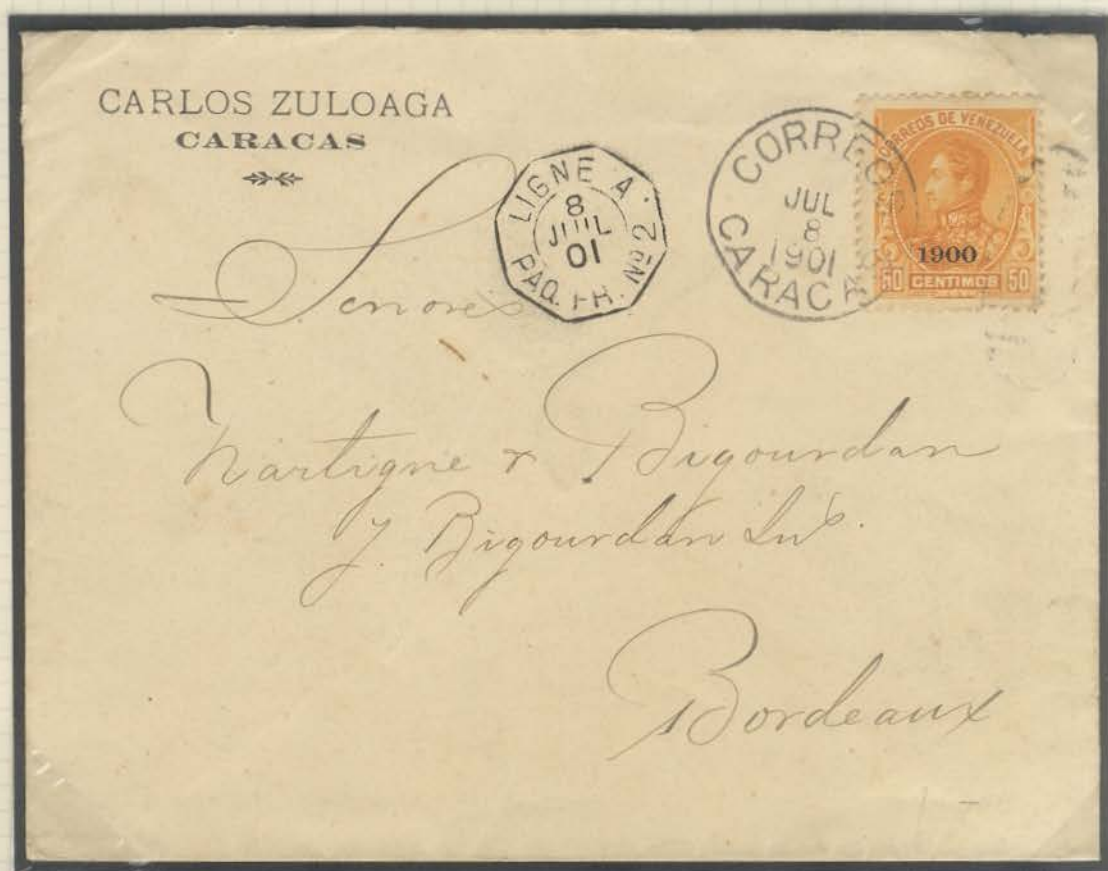 CARLOS ZULOAGA
CARACAS
LIGNE A.
8
JUIL
01
PAQ. FR. Nº 2
CORREOS
JUL
8
1901
CARACAS
CORREOS DE VENEZUELA
1900
50 CENTIMOS 50
Senores
Nartigue & Bigourdan
J. Bigourdan
Bordeaux